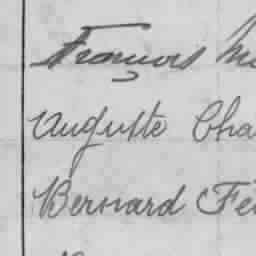 François
Auguste Cha
Bernard Fé